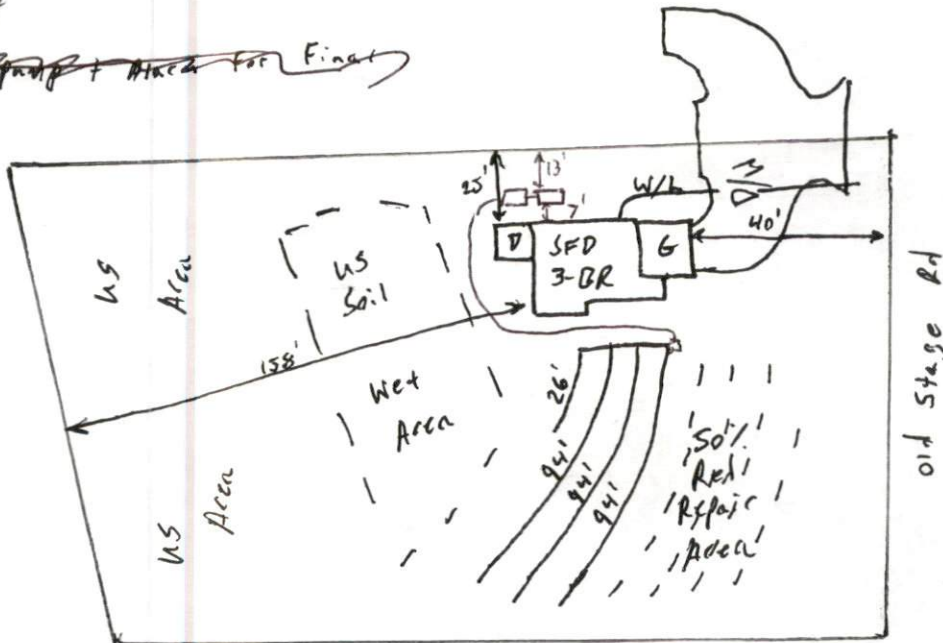 Pump + Attach For Final
25'
13'
7'
W/L
40'
D
SFD
3-BR
G
US
Area
US
Soil
158'
Wet
Area
US
Area
26'
94'
94'
94'
50%
Red
Repair
Area
Old Stage Rd